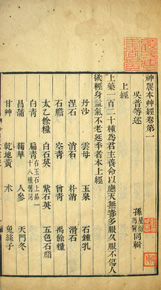 神農本草經卷第一
吳普等述
孫星衍 孫馮翼 同輯
上經
上藥一百二十種為君主養命以應天無毒多服久服不傷人
欲輕身益氣不老延年者本上經
丹沙 雲母 玉泉 石鍾乳
涅石 消石 朴消 滑石
石膽 空青 曾青 禹餘糧
太乙餘糧 白石英 紫石英 五色石脂
白青 扁青 右玉石上品一十八種舊同
菖蒲 鞠華 人參 天門冬
甘草 乾地黃 朮 兔絲子